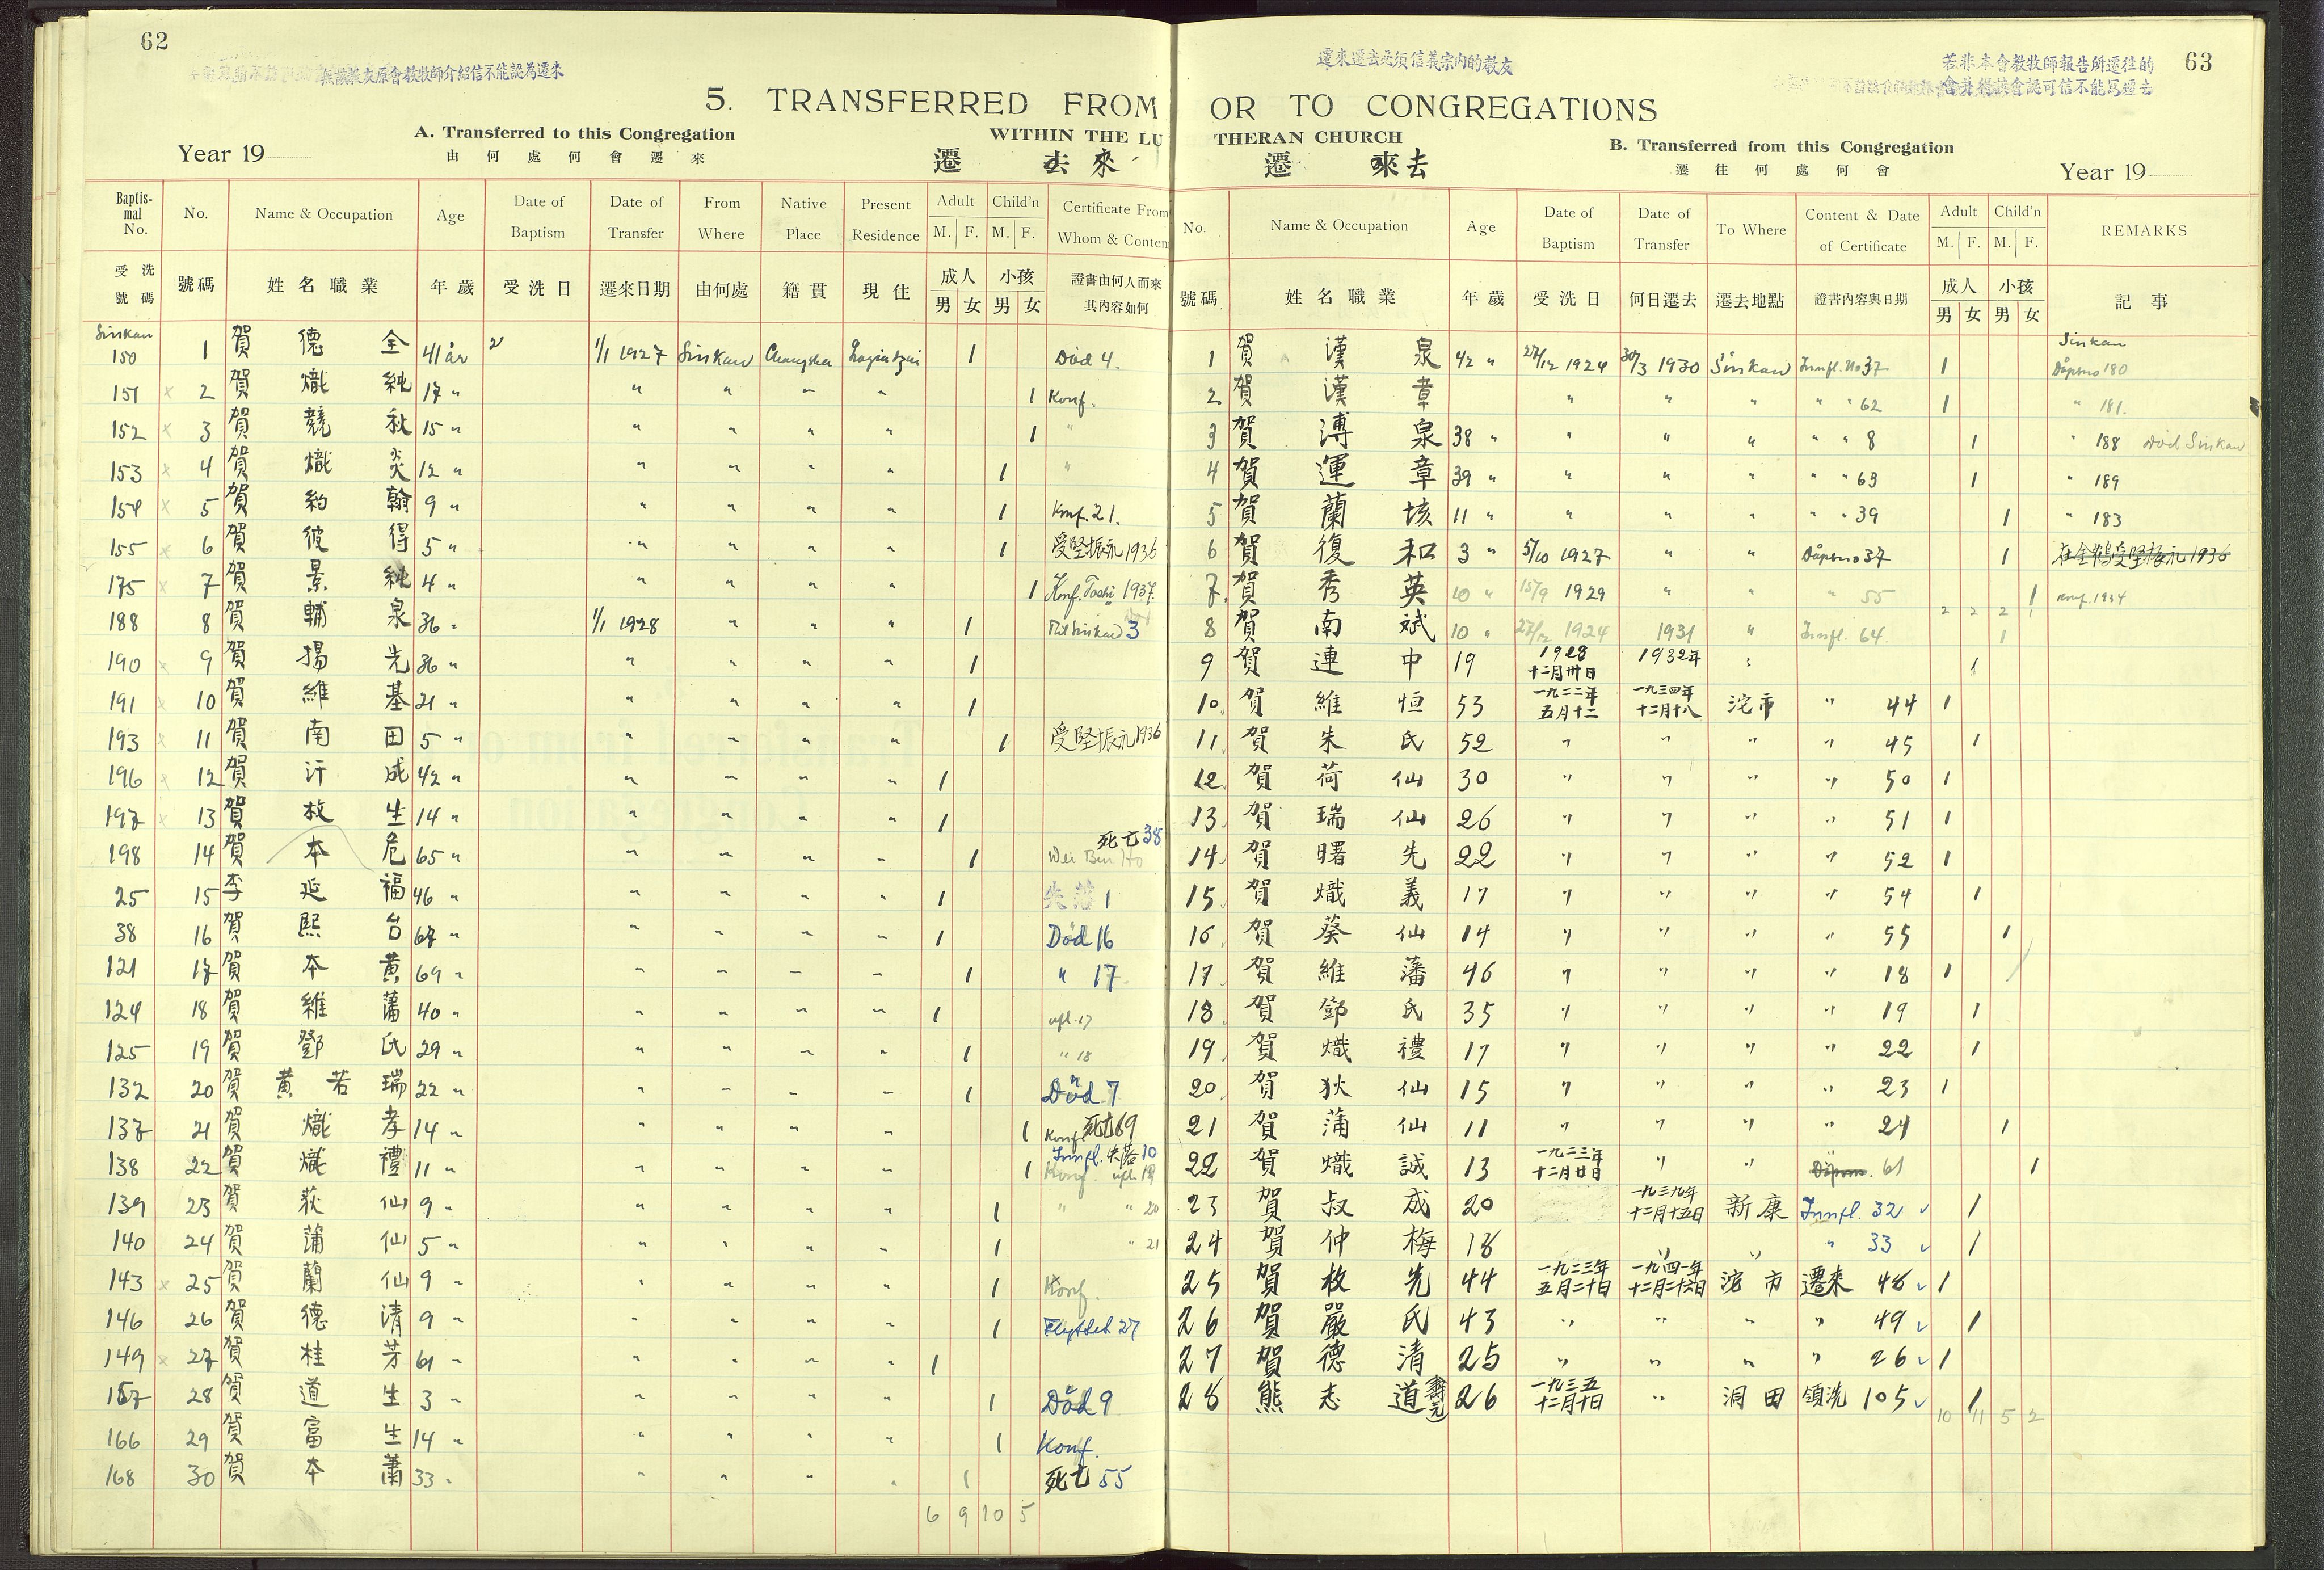 62
無該教友原會教牧師介紹信不能認為遷來
5. TRANSFERRED FROM
A. Transferred to this Congregation
WITHIN THE LU
Year 19
由何處何會遷來
遷 去來
Baptismal No. No. Name & Occupation Age Date of Baptism Date of Transfer From Where Native Place Present Residence Adult M. F. Child'n M. F. Certificate From Whom & Conten
受洗號碼 號碼 姓名職業 年歲 受洗日 遷來日期 由何處 籍貫 現住 成人 男 女 小孩 男 女 證書由何人而來其內容如何
Sinkan
150 1 賀德全 41 år 1/1 1927 Sinkan Changsha 1 Död 4.
151 x 2 賀熾純 17 " " " " " 1 Konf.
152 x 3 賀競秋 15 " " " " " 1 "
153 x 4 賀熾炎 12 " " " " " 1 "
154 x 5 賀約翰 9 " " " " " 1 Konf. 21.
155 x 6 賀彼得 5 " " " " " 1 受堅振礼 1936
175 x 7 賀景純 4 " " " " " 1 Konf. 1937.
188 8 賀輔泉 36 " 1/1 1928 " " " 1 Till Sinkan 3
190 x 9 賀揚光 36 " " " " " 1
191 x 10 賀維基 21 " " " " " 1
193 x 11 賀南田 5 " " " " " 1 受堅振礼 1936
196 x 12 賀汗成 42 " " " " " 1
197 x 13 賀枚生 14 " " " " " 1
198 14 賀本危 65 " " " " " 1 死亡 38 Wei Ben Ho
25 15 李延福 46 " " " " " 1 失落 1
38 16 賀熙台 68 " " " " " 1 Död 16
121 17 賀本黄 69 " " " " " 1 " 17
124 18 賀維藩 40 " " " " " 1 utfl. 17
125 19 賀鄧氏 29 " " " " " 1 " 18
132 20 賀黄若瑞 22 " " " " " 1 Död 7
137 21 賀熾孝 14 " " " " " 1 Konf. 死亡 69
138 22 賀熾禮 11 " " " " " 1 Innfl. 失落 10 Konf. utfl. 19
139 23 賀荻仙 9 " " " " " 1 " " 20
140 24 賀蒲仙 5 " " " " " 1 " 21
143 x 25 賀蘭仙 9 " " " " " 1 Konf.
146 26 賀德清 9 " " " " " 1 Flyttet 27
149 x 27 賀桂芳 61 " " " " " 1
157 28 賀道生 3 " " " " " 1 Död 9
166 29 賀富生 14 " " " " " 1 Konf.
168 30 賀本蕭 33 " " " " " 1 死亡 55
6 9 10 5
63
遷來遷去必須信義宗內的教友
若非本會教牧師報告所遷往的
會并得該會認可信不能寫遷去
OR TO CONGREGATIONS
THERAN CHURCH
B. Transferred from this Congregation
遷 來去
遷往何處何會
Year 19
No. Name & Occupation Age Date of Baptism Date of Transfer To Where Content & Date of Certificate Adult M. F. Child'n M. F. REMARKS
號碼 姓名職業 年歲 受洗日 何日遷去 遷去地點 證書內容與日期 成人 男 女 小孩 男 女 記事
Sinkan
1 賀漢泉 42 " 27/12 1924 30/3 1930 Sinkan Innfl. No 37 1 Dåpsno 180
2 賀漢章 " " " " " 62 1 " 181.
3 賀溥泉 38 " " " " " " 8 1 " 188 Död Sinkan
4 賀運章 39 " " " " " " 63 1 " 189
5 賀蘭垓 11 " " " " " " 39 1 " 183
6 賀復和 3 " 5/10 1927 " " Dåpsno 37 1 在金鶴受堅振礼 1936
7. 賀秀英 10 " 15/9 1929 " " " 55 1 Konf. 1934
2 2 2 1
8 賀南斌 10 " 27/12 1924 1931 " Innfl. 64. 1
9 賀連中 19 1928 十二月卅日 1932年 " 1
10 賀維恒 53 一九二二年五月十二 一九三四年十二月十八 沱市 " 44 1
11 賀朱氏 52 " " " " 45 1
12 賀荷仙 30 " " " " 50 1
13 賀瑞仙 26 " " " " 51 1
14 賀曙先 22 " " " " 52 1
15 賀熾義 17 " " " " 54 1
16 賀葵仙 14 " " " " 55 1
17 賀維藩 46 " " " " 18 1
18 賀鄧氏 35 " " " " 19 1
19 賀熾禮 17 " " " " 22 1
20 賀狄仙 15 " " " " 23 1
21 賀蒲仙 11 " " " " 24 1
22 賀熾誠 13 一九二三年十二月廿日 " " Dåpsno. 61 1
23 賀叔成 20 一九三九年十二月十五日 新康 Innfl. 32 1
24 賀仲梅 18 " " " 33 1
25 賀枚先 44 一九二三年五月二十日 一九四一年十二月二十六日 沱市 遷來 48 1
26 賀嚴氏 43 " " " " 49 1
27 賀德清 25 " " " " 26 1
28 熊志道(壽元) 26 一九三五十二月十日 " 洞田 領洗 105 1
10 11 5 2